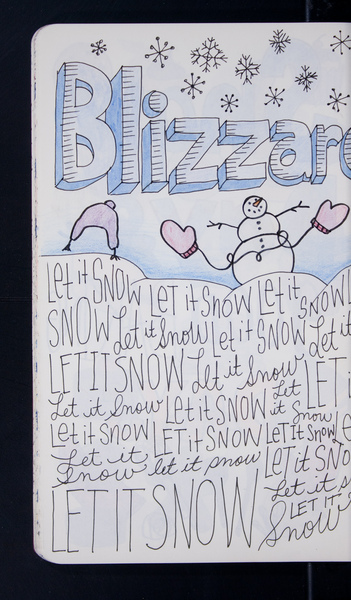 Blizzard
Let it SNOW LET it SNOW Let it SNOW
SNOW Let it Snow Let it SNOW Let it
LET IT SNOW Let it Snow LET
Let it Snow Let it SNOW Let it Snow
Let it SNOW LET it SNOW LET IT SNOW
Let it Snow let it snow LET it SNO
LET IT SNOW Let it s
LET IT
Snow